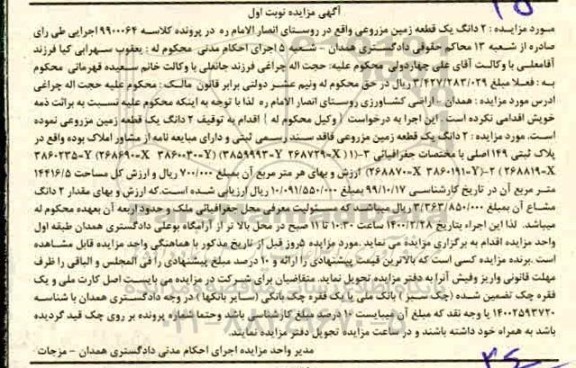 آگهی مزایده نوبت اول
مورد مزایده : ۲ دانگ یک قطعه زمین مزروعی واقع در روستای انصار الامام ره در پرونده کلاسه ۹۹۰۰۰۶۴ اجرایی طی رای
صادره از شعبه ۱۳ محاکم حقوقی دادگستری همدان - شعبه ۵ اجرای احکام مدنی محکوم له : یعقوب سهرابی کیا فرزند
آقامعلی با وکالت آقای علی چهاردولی محکوم علیه: حجت اله چراغی فرزند جانعلی با وکالت خانم سعیده قهرمانی محکوم
به : فعلا مبلغ ۳/۴۲۷/۲۸۳/۰۲۹ ریال در حق محکوم له ونیم عشر دولتی برابر قانون مالک : محکوم علیه حجت اله چراغی
ادرس مورد مزایده : همدان - اراضی کشاورزی روستای انصار الامام ره لذا با توجه به اینکه محکوم علیه نسبت به برائت ذمه
خویش اقدامی نکرده است . این اجرا به درخواست ( وکیل محکوم له ) اقدام به توقیف ۲ دانگ یک قطعه زمین مزروعی نموده
است. مورد مزایده : ۲ دانگ یک قطعه زمین مزروعی فاقد سند رسمی ثبتی و دارای مبایعه نامه از مشاور املاک بوده واقع در
پلاک ثبتی ۱۴۹ اصلی با مختصات جغرافیائی ۳-(۱(X-۲۶۸۷۲۹ Y-۳۸۵۹۹۹۳) (Y-۳۸۶۰۰۳۰۰ X-۲۶۸۶۹۰) Y-۳۸۶۰۲۳۵
X-۲۶۸۸۱۹) ۲-(Y-۳۸۶۰۱۹۱ X-۲۶۸۸۷۰) ارزش و بهای هر متر مربع آن بمبلغ ۷۰۰/۰۰۰ ریال و ارزش کل مساحت ۱۴۴۱۶/۵
متر مربع آن در تاریخ کارشناسی ۹۹/۱۰/۱۷ بمبلغ ۱۰/۰۹۱/۵۵۰/۰۰۰ ریال ارزیابی شده است.که ارزش و بهای مقدار ۲ دانگ
مشاع آن بمبلغ ۳/۳۶۳/۸۵۰/۰۰۰ ریال میباشد که مسئولیت معرفی محل جغرافیائی ملک و حدود اربعه آن بعهده محکوم له
میباشد. لذا این اجراء بتاریخ ۱۴۰۰/۲/۲۸ ساعت ۱۰:۳۰ تا ۱۱ صبح در محل بالا تر از آرامگاه بوعلی دادگستری همدان طبقه اول
واحد مزایده اقدام به برگزاری مزایده می نماید .مورد مزایده ۵روز قبل از تاریخ مذکور با هماهنگی واحد مزایده قابل مشاهده
است .برنده مزایده کسی است که بالاترین قیمت پیشنهادی را ارائه و۱۰ درصد مبلغ پیشنهادی را فی المجلس و الباقی را ظرف
مهلت قانونی واریز وفیش آنرا به دفتر مزایده تحویل نماید. متقاضیان برای شرکت در مزایده می بایست اصل کارت ملی و یک
فقره چک تضمین شده ( چک سبز ) بانک ملی یا یک فقره چک بانکی (سایر بانکها ) در وجه دادگستری همدان با شناسه
۱۴۰۰۲۵۹۳۷۲۰ یا وجه نقد که مبلغ آن میبایست ۱۰ درصد مبلغ کارشناسی باشد وحتما شماره پرونده بر روی چک قید گردیده
باشد به همراه خود داشته باشند و در ساعت مزایده تحویل دفتر مزایده نمایند.
مدیر واحد مزایده اجرای احکام مدنی دادگستری همدان - مزجات